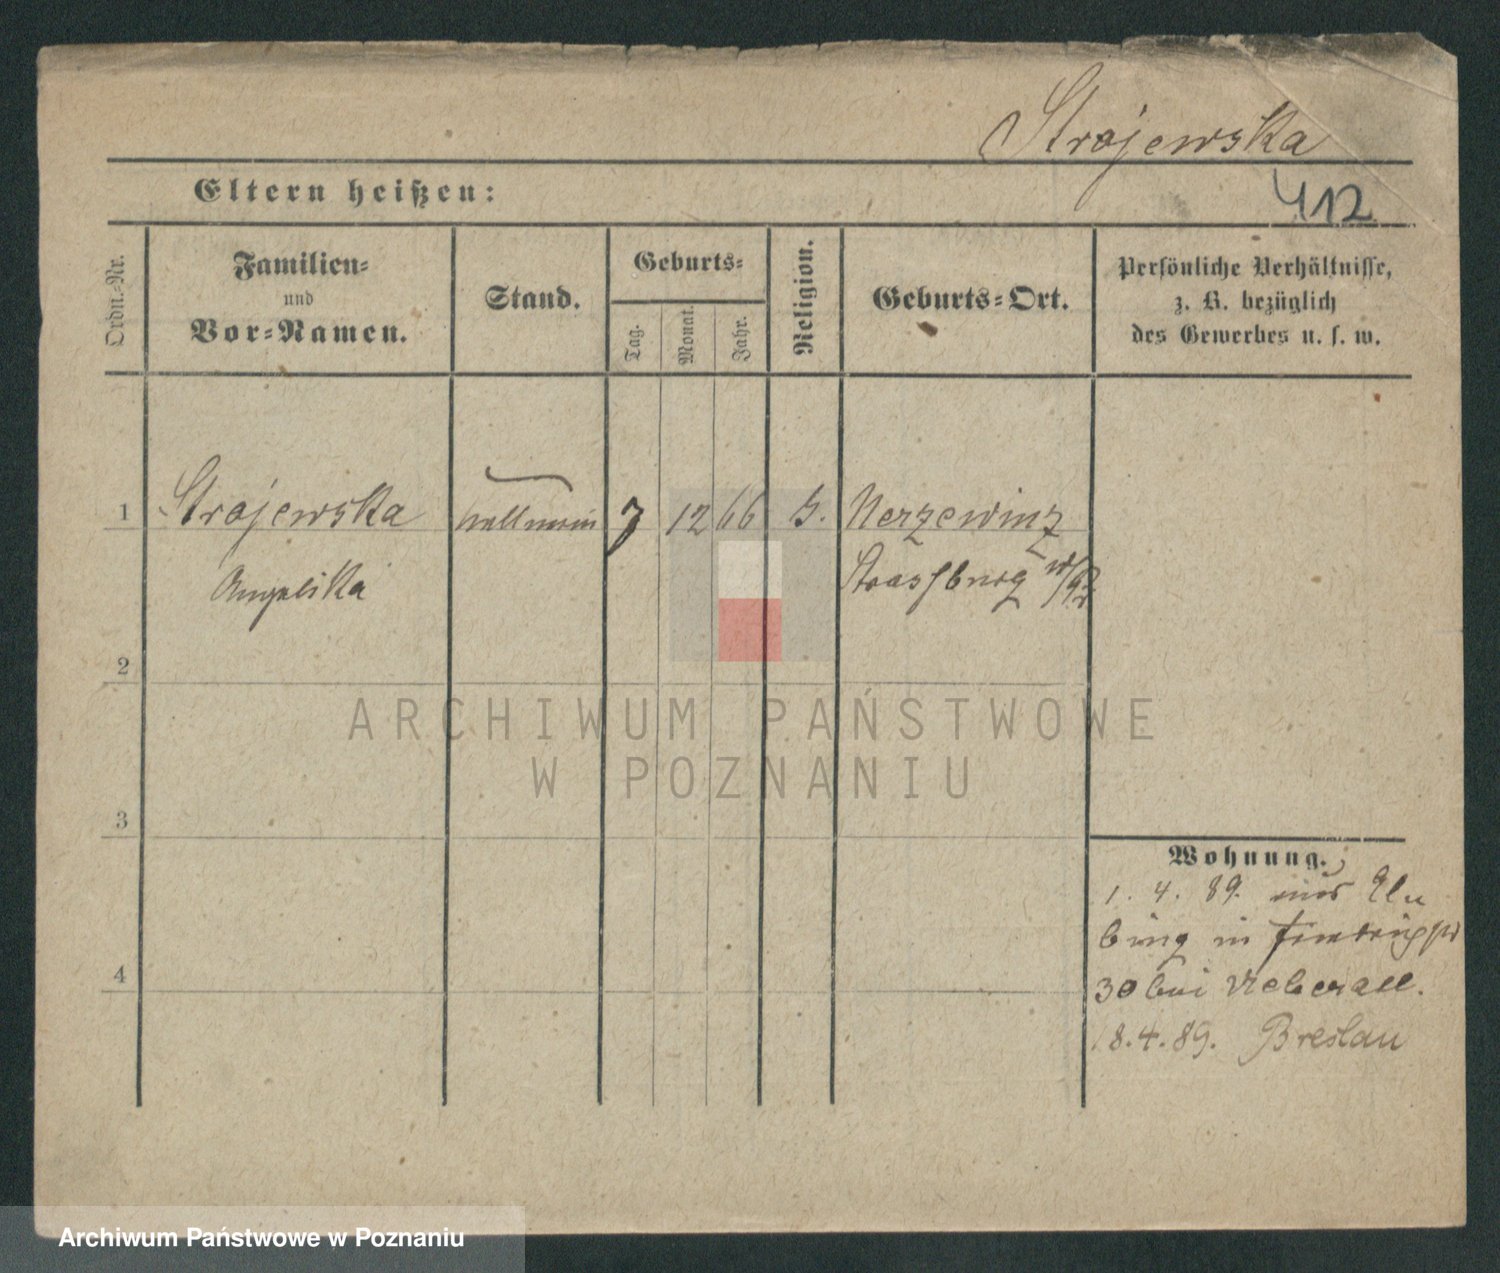 Strojewska
Eltern heißen:
412
Ordn.-Nr.
Familien-
und
Vor-Namen.
Stand.
Geburts-
Tag.
Monat.
Jahr.
Religion.
Geburts-Ort.
Persönliche Verhältnisse,
z. B. bezüglich
des Gewerbes u. s. w.
1 Strojewska 7 12 66
Angelika Strassburg
2
ARCHIWUM PAŃSTWOWE
W POZNANIU
3
Wohnung.
1. 4. 89.
4
30 bei
18. 4. 89. Breslau
Archiwum Państwowe w Poznaniu